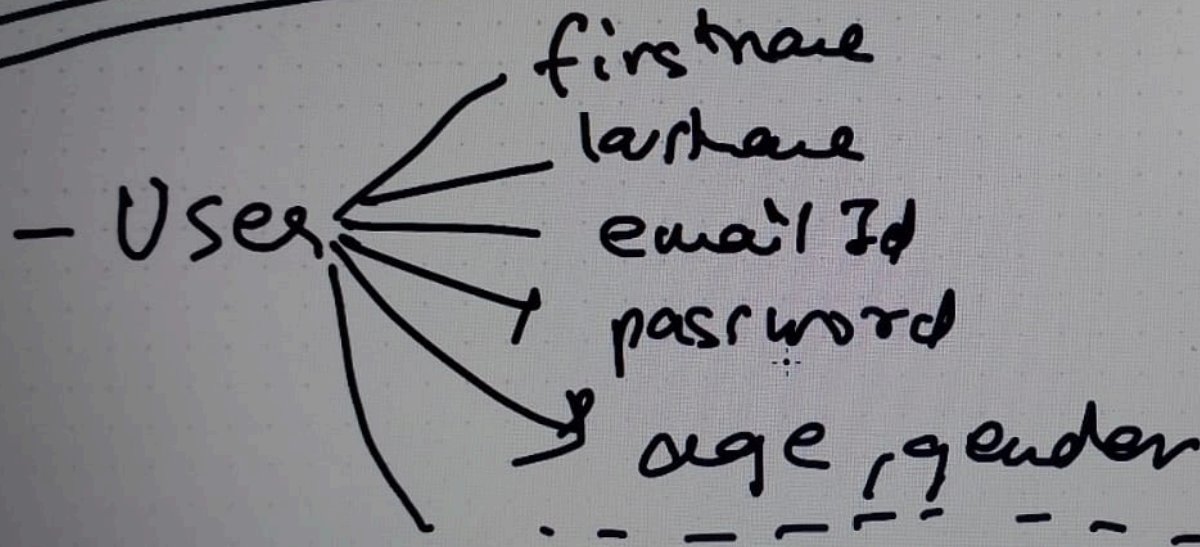 - User
firstname
lastname
email Id
password
age, gender